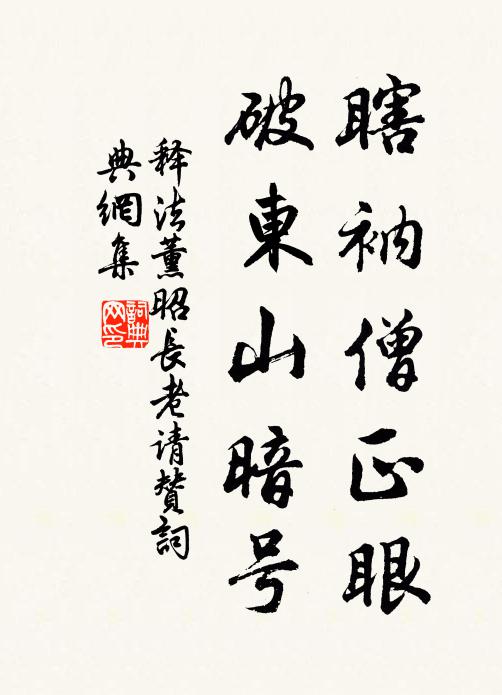 瞎衲僧正眼
破東山暗号
释法薰昭長老请赞詞
典網集
詞典网印